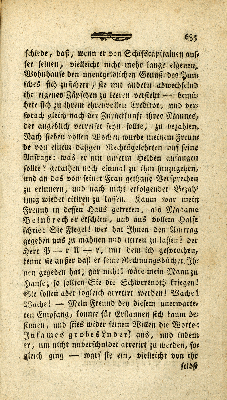 685
schickt, daß, wenn er von Schifskapitainen aus-
ser seinen, vielleicht nicht mehr lange eigenen,
Wohnhause den unentgeldlichen Genuß des Pun-
sches sich zusichert, sie mit andern abwechselnd
ihr eigenes Zäpfchen zu leeren versteht — bemäch-
tigte sich zu ihrem ehrenvollen Creditor, und ver-
sprach gleich nach der Zurückkunft ihres Mannes,
der angeblich verreiset seyn sollte, zu bezahlen.
Nach sieben vollen Wochen wurde meinem Freunde
von einem dasigen Rechtsgelehrten auf seine
Anfrage: was er mit unserm Helden anfangen
sollte? gerathen noch einmal zu ihm hinzugehen,
und an das von seiner Frau gethane Versprechen
zu erinnern, und nach nicht erfolgender Bezah-
lung wieder citiren zu lassen. Kaum war mein
Freund in dessen Haus getreten, als Madame
Helmbrecht erschien, und aus vollem Halse
schrie: Sie Flegel! wer hat Ihnen den Auftrag
gegeben uns zu mahnen und citiren zu lassen? der
Herr P — r K — r, mit dem ich gesprochen,
kennt sie ausser daß er seine Rechnungsbücher. Ih-
nen gegeben hat, gar nicht! wäre mein Mann zu
Hause, so sollten Sie die Schwerenoth kriegen!
Sie sollen aber sogleich arretirt werden! Wache!
Wache! — Mein Freund bey diesem unerwarte-
ten Empfang, konnte für Erstaunen sich kaum be-
sinnen, und stieß wider seinen Willen die Worte:
Infames grobes Luder! aus, und indem
er, um nicht unverschuldet arretirt zu werden, so-
gleich ging — warf sie ein, vielleicht von ihr
selbst